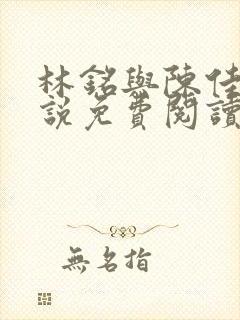 林銘與陳佳
説免費閱讀
無名指